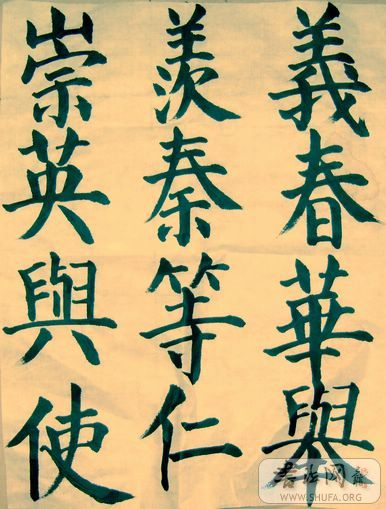 義春華與
羨秦等仁
崇英與使
書法网
WWW.SHUFA.ORG